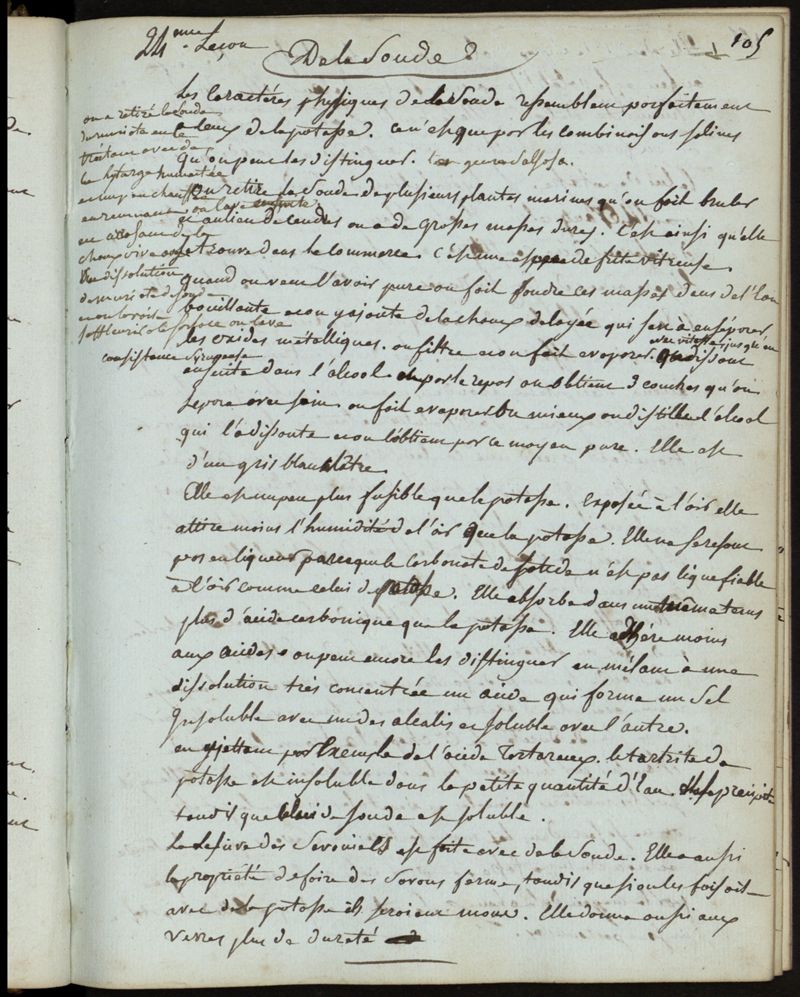 24me Leçon
105
De la Soude
Les Caractéres physiques de la Soude ressemblent parfaitement
a ceux de la potasse. ce n'est que par les combinaisons salines
qu'on peut les distinguer.
on retire la Soude de plusieurs plantes marines qu'on fait bruler
et au lieu de cendres on a de grosses masses dures. C'est ainsi qu'elle
se trouve dans le commerce. C'est une espece de fritte vitreuse.
quand on veut l'avoir pure on fait fondre ces masses dans de l'eau
bouillante et on y ajoute de la chaux delayée qui sert à en séparer
les oxides métalliques. on filtre et on fait evaporer jusqu'en
consistance Sirupeuse
on dissout
ensuite dans l'alcool et par le repos on obtient 3 couches qu'on
separe avec soin on fait evaporer ou mieux on distille l'alcool
qui l'a dissoute et on l'obtient par ce moyen pure. Elle est
d'un gris blanchâtre.
Elle est un peu plus fusible que la potasse. Exposée à l'air elle
attire moins l'humidité de l'air que la potasse. Elle ne se resout
pas en liqueur parceque le carbonate de soude n'est pas liquefiable
a l'air comme celui de potasse. Elle absorbe dans un même tems
plus d'acide carbonique que la potasse. Elle adhére moins
aux acides on peut encore les distinguer en mêlant a une
dissolution très concentrée un acide qui forme un Sel
Insoluble avec un des alcalis et soluble avec l'autre.
en y jettant par Exemple de l'acide Tartareux. le tartrite de
potasse est insoluble dans la petite quantité d'eau. Il se précipite
tandis que celui de soude est soluble.
La Lessive des Savoniers est faite avec de la Soude. Elle a aussi
la propriété de faire des Savons fermes, tandis que si on les faisoit
avec de la potasse ils seroient mous. Elle donne aussi aux
verres plus de dureté
on a retiré la Soude
du muriate en le
traitant avec de
la litharge humectée